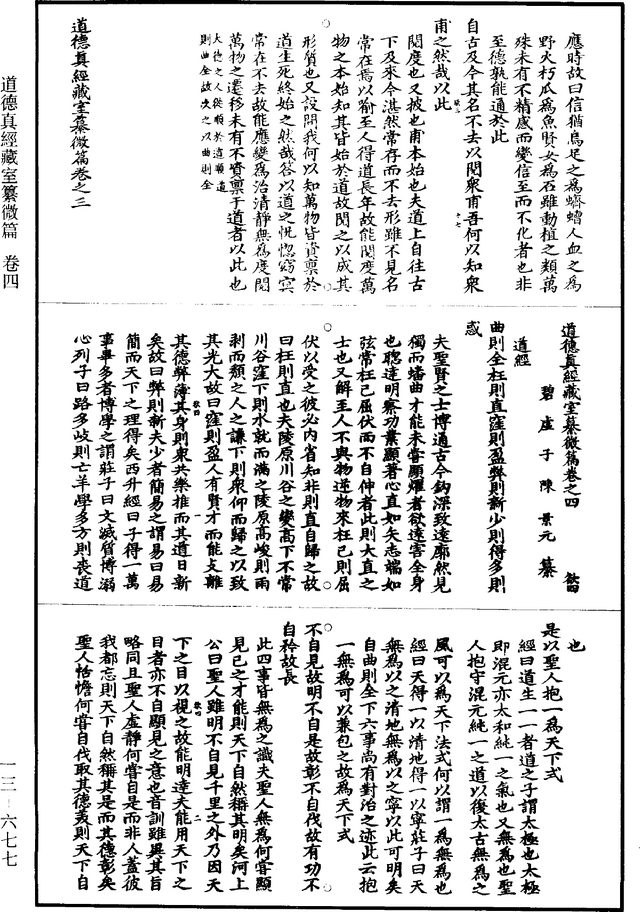 應時故曰信猶烏足之為蠐螬人血之為
野火朽瓜為魚賢女為石雖動植之類萬
殊未有不精感而變信至而不化者也非
至德孰能通於此
自古及今其名不去以閱衆甫吾何以知衆
甫之然哉以此
閱度也又披也甫本始也夫道上自往古
下及來今湛然常存而不去形雖不見名
常在焉以喻至人得道長年故能閱度萬
物之本始知其皆始於道故閱之以成其
形質也又設問我何以知萬物皆資禀於
道生死終始之然哉荅以道之恍惚窈冥
常在不去故能應變為治清靜無為度閱
萬物之遷移未有不資禀于道者以此也
大德之人從順於道順道
則曲全故次之以曲則全
道德真經藏室纂微篇卷之三
道德真經藏室纂微篇卷之四 欲四
碧虛子陳景元纂
道經
曲則全枉則直窪則盈弊則新少則得多則
惑
夫聖賢之士博通古今鈎深致遠廓然見
獨而蟠曲才能未嘗顯耀者欲遠害全身
也聰達明察功業顯著心直如矢志端如
弦常枉己屈伏而不自伸者此則大直之
士也又解至人不與物逆物來枉己則屈
伏以受之彼必內省知非則直自歸之故
曰枉則直也夫陵原川谷之變高下不常
川谷窪下則水就而滿之陵原高峻則雨
剥而頹之人之謙下則衆仰而歸之以致
其光大故曰窪則盈人有賢才而能支離
其德弊薄其身則衆共樂推而其道日新
矣故曰弊則新夫少者簡易之謂易曰易
簡而天下之理得矣西升經曰子得一萬
事畢多者博學之謂莊子曰文滅質博溺
心列子曰路多歧則亡羊學多方則喪道
也
是以聖人抱一為天下式
經曰道生一一者道之子謂太極也太極
即混元亦太和純一之氣也又無為也聖
人抱守混元純一之道以復太古無為之
風可以為天下法式何以謂一為無為也
經曰天得一以清地得一以寧莊子曰天
無為以之清地無為以之寧以此可明矣
自曲則全下六事尚有對治之迹此云抱
一無為可以兼包之故為天下式
不自見故明不自是故彰不自伐故有功不
自矜故長
此四事皆無為之識夫聖人無為何嘗顯
見己之才能則天下自然稱其明矣河上
公曰聖人雖明不自見千里之外乃因天
下之目以視之故能明達夫能用天下之
目者亦不自顯見之意也音訓雖異其旨
略同且聖人虛靜何嘗自是而非人蓋彼
我都忘則天下自然稱其是而其德彰矣
聖人恬憺何嘗自伐取其德美則天下自
道德真經藏室纂微篇 卷四
一三—六七七